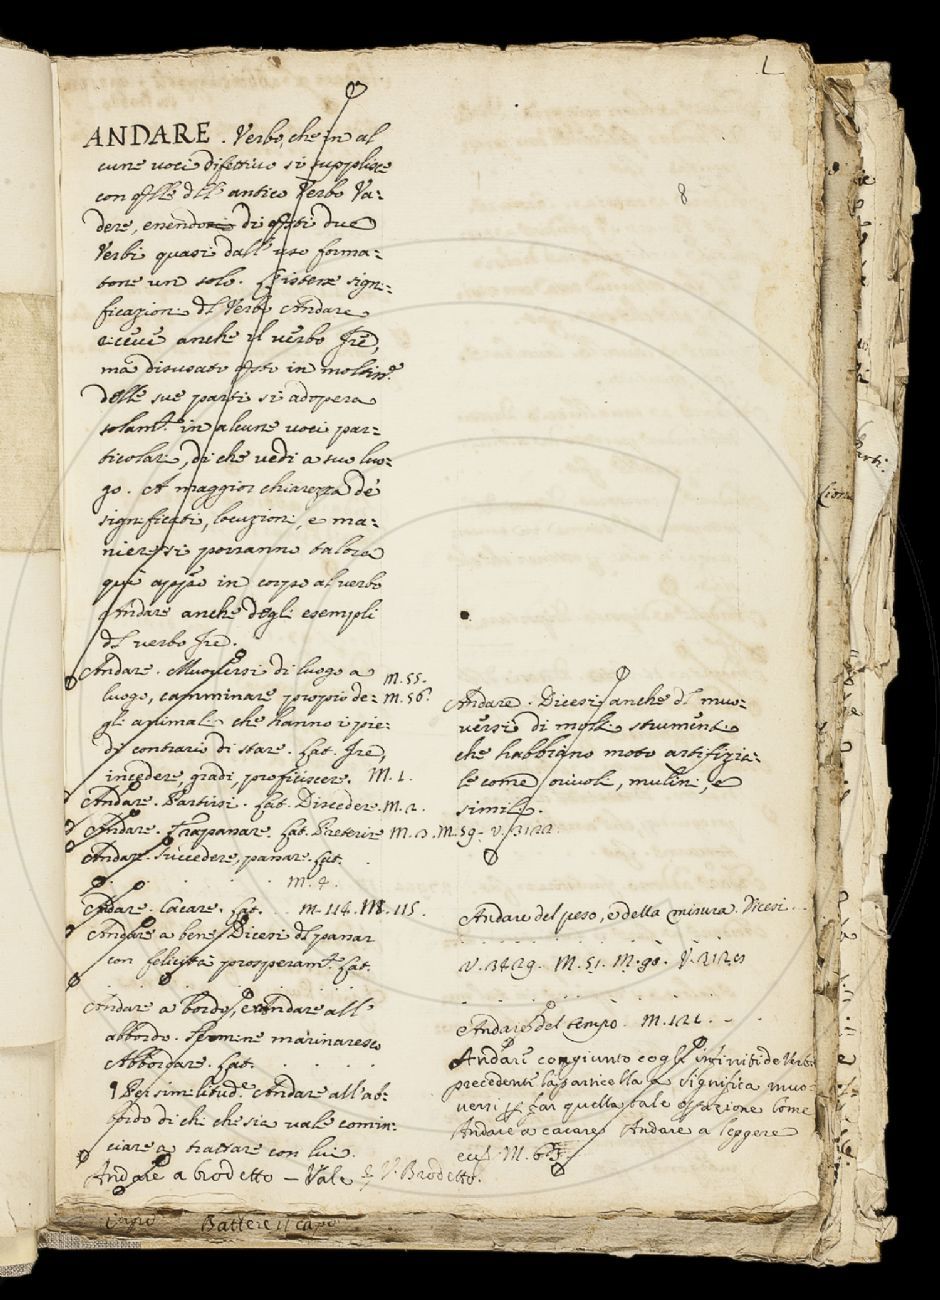 1
8
ANDARE. Verbo, che in al
cune voci difettivo si supplisce
con qlle dell' antico Verbo Va=
dere, essendo di qsti due
Verbi quasi dall' uso forma=
tone un solo. L'istesse signi=
ficazioni del Verbo Andare
riceve anche il verbo Ire,
ma disusato qsto in moltiss.e
delle sue parti si adopera
solam.te in alcune voci par=
ticolari, di che vedi a suo luo=
go. A maggior chiarezza de
significati, locuzioni, e ma=
niere si porranno talora
quì appso in corpo al verbo
Andare anche degli esempli
del verbo Ire.
Andare. Muoversi di luogo a M.55.
luogo, camminare proprio de= M.56.
gli animali che hanno i pie=
di contrario di stare. Lat. Ire,
incedere, gradi, proficiscere. M.1.
Andare. Partirsi. Lat. Discedere. M.2.
Andare. Trapassare. Lat. Preterire M.3. M.59. V.3122.
Andare. Succedere, passare. Lat.
M.4.
Andare. Cacare. Lat. . . M.114. M.115.
Andare a bene Dicesi del passar
con felicità prosperam.te Lat.
Andare a bordo, e Andare all'
abbordo. Termine marinaresco
Abbordare. Lat.
¶ Per similitud.e Andare all' ab=
bordo di chi che sia vale comin=
ciare a trattare con lui.
Andare a brodetto — Vale V. Brodetto.
Andare. Dicesi anche del muo=
versi di molti strumenti
che habbiano moto artifizia=
le come orivoli, mulini, e
simili.
Andare del peso, e della misura. Dicesi . .
V.3429. M.51. M.98. V.2120
Andare del tempo. M.121. . .
Andare congiunto cogli infiniti de Verbi
precedenti la particella A significa muo=
versi p far quella tale operazione Come
Andare a cacare Andare a leggere
M.63.
Battere il capo